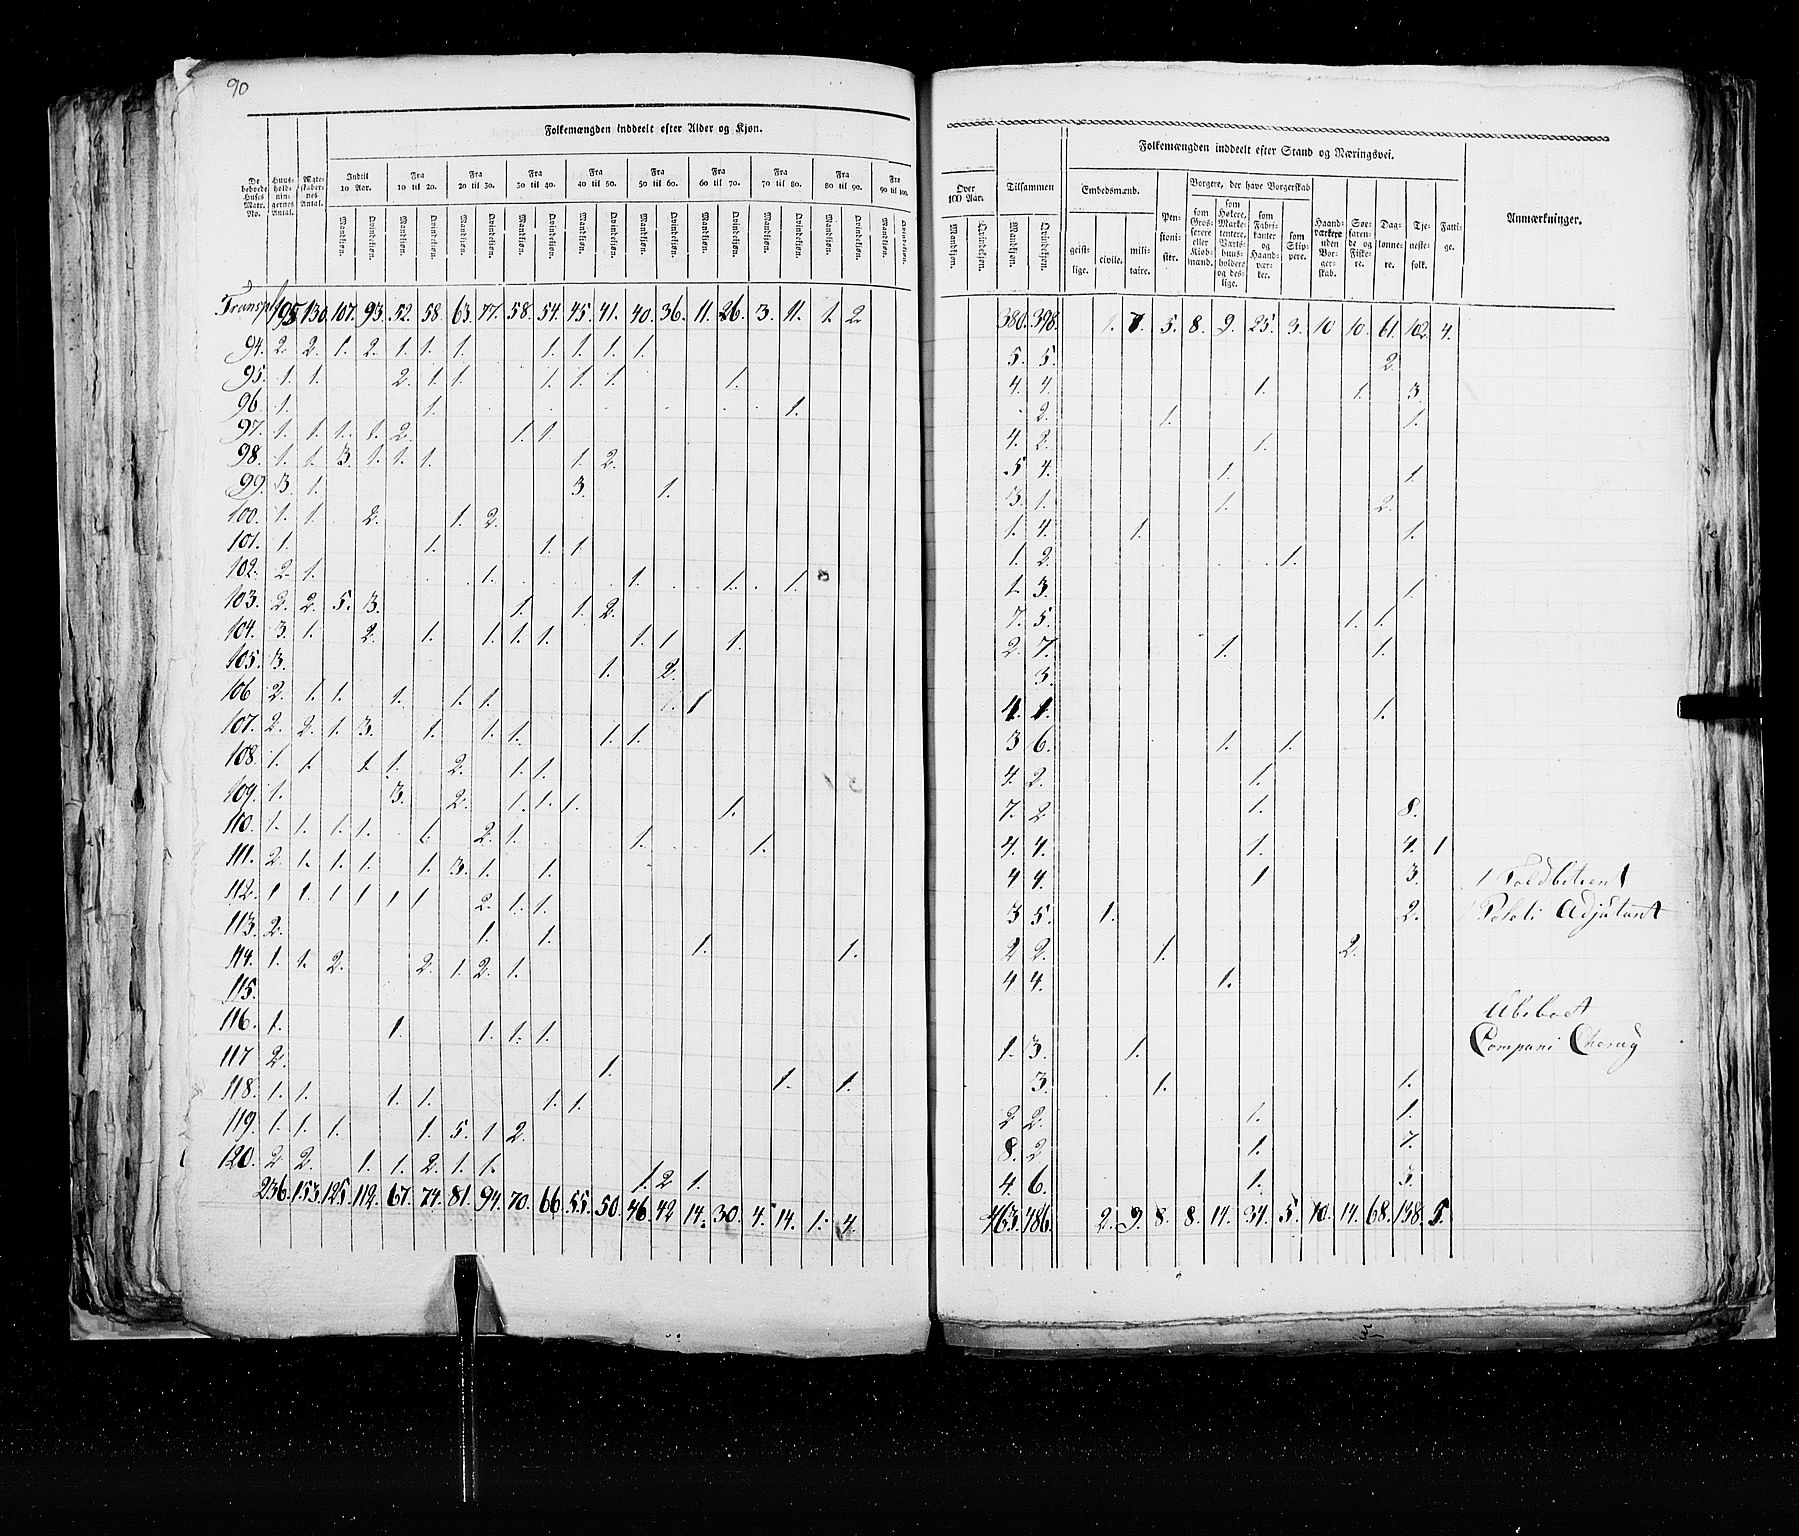 90
Folkemængden inddeelt efter Alder og Kjøn.
De beboede Huses Matr. No. | Huus-hold-nin-gernes Antal. | Ægte-skaber-nes Antal. | Indtil 10 Aar. | Fra 10 til 20. | Fra 20 til 30. | Fra 30 til 40. | Fra 40 til 50. | Fra 50 til 60. | Fra 60 til 70. | Fra 70 til 80. | Fra 80 til 90. | Fra 90 til 100.
Mandkjøn. Qvindekjøn. Mandkjøn. Qvindekjøn. Mandkjøn. Qvindekjøn. Mandkjøn. Qvindekjøn. Mandkjøn. Qvindekjøn. Mandkjøn. Qvindekjøn. Mandkjøn. Qvindekjøn. Mandkjøn. Qvindekjøn. Mandkjøn. Qvindekjøn. Mandkjøn. Qvindekjøn.
Transpt 195 130. 107. 93. 52. 58. 63. 77. 58. 54. 45. 41. 40. 36. 11. 26. 3. 11. 1. 2.
94. 2. 2. 1. 2. 1. 1. 1. 1. 1. 1. 1.
95. 1. 1. 2. 1. 1. 1. 1. 1. 1.
96. 1. 1. 1.
97. 1. 1. 1. 1. 2. 1. 1.
98. 1. 1. 3. 1. 1. 1. 1. 2.
99. 3. 1. 3. 1.
100. 1. 1. 2. 1. 2.
101. 1. 1. 1. 1
102. 2. 1. 1. 1. 1. 1.
103. 2. 2. 5. 3. 1. 1. 2.
104. 3. 1. 2. 1. 1. 1. 1. 1. 1. 1.
105. 3. 1. 2.
106 2. 1. 1. 1. 1. 1. 1
107. 2. 2. 1. 3. 1. 1. 1. 1. 1.
108. 1. 1. 1. 1. 2. 1. 1.
109. 1. 3. 2. 1. 1. 1. 1.
110. 1. 1. 1. 1. 1. 2. 1. 1. 1.
111. 2. 1. 1. 1. 1. 3. 1. 1.
112. 1 1. 1 1 1 1 2. 1. 1.
113. 2. 1. 1. 1. 1.
114. 1. 1. 2. 2. 1. 2. 1.
115.
116. 1. 1. 1. 1. 1.
117 2. 1. 1. 1.
118. 1. 1. 1. 1. 1. 1.
119. 1. 1. 1. 1. 5. 1 2.
120. 2. 2. 1. 1. 2. 1. 1. 1. 2 1.
236. 153. 125. 112. 67. 74. 81. 94. 70. 66 55. 50. 46. 42 14. 30. 4. 14. 1. 4.
Over 100 Aar. | Tilsammen | Folkemængden inddeelt efter Stand og Næringsvei. | Anmærkninger.
Embedsmænd. | Pen-sioni-ster. | Borgere, der have Borgerskab | Haand-værkere uden Bor-ger-skab. | Søe-farende og Fiske-re. | Dag-lønne-re. | Tje-neste-folk. | Fatti-ge.
Mandkjøn. Qvindekjøn. Mandkjøn. Qvindekjøn. geist-lige. civile. mili-taire. som Gros-serere eller Kjøb-mænd. som Høkere, Marke-tentere, Værts-huus-holdere og des-lige. som Fabri-kanter og Haand-vær-ker. som Skip-pere.
380. 398. 1. 7. 5. 8. 9. 25. 3. 10 10. 61. 102. 4.
5. 5. 2.
4. 4. 1. 1. 3.
2. 1. 1.
4. 2. 1.
5 4. 1. 1.
3. 1. 1. 2.
1. 4. 1. 1.
1. 2. 1.
1. 3. 1.
7. 5. 1. 1.
2. 7. 1. 1.
3.
4. 1. 1.
3 6. 1. 1.
4. 2. 1.
7. 2 1. 8.
4. 4. 1. 4. 1
4 4. 1 3. 1 Toldbetient
3 5. 1. 2. Politi Adjutant
2 2. 1. 2.
4 4. 1.
Ubeboet
1. 3. 1. Compani Chirug
3. 1. 1.
2 2. 1. 1.
8. 2 1. 7.
4. 6. 1. 3.
463. 486. 2. 9. 8. 8. 14. 34. 5. 10. 14. 68. 138. 5.